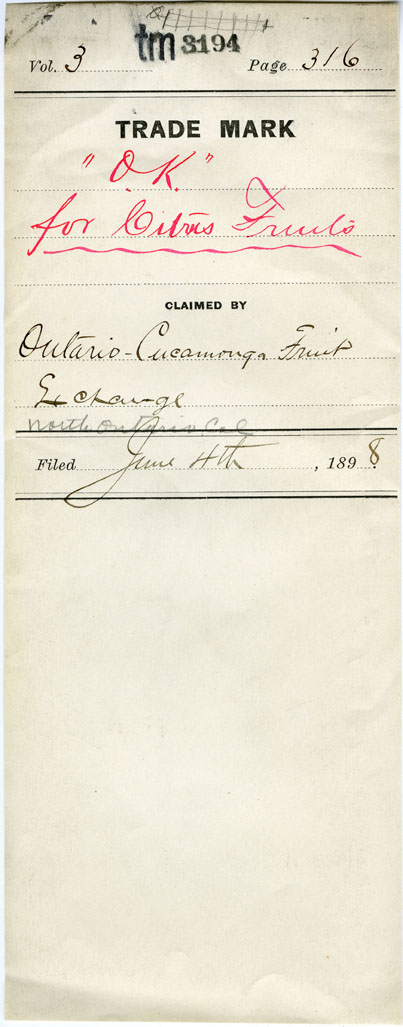 tm 3194
Vol. 3 Page 316
TRADE MARK
"O.K."
for Citrus Fruits
CLAIMED BY
Ontario-Cucamonga Fruit
Exchange
North Ontario, Cal
Filed June 4th, 1898